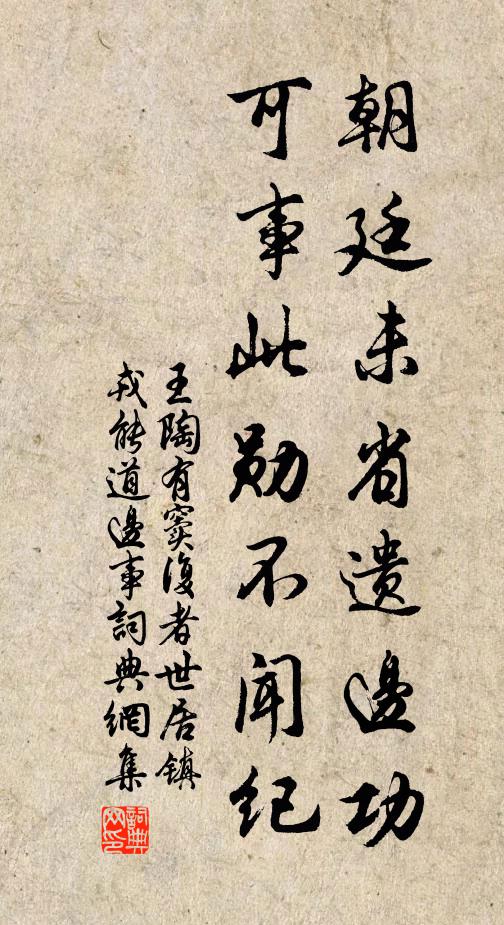 朝廷未省遗邊功
可事此勋不闻纪
王陶有窦復者世居镇
戎能道邊事詞典網集
詞典网印